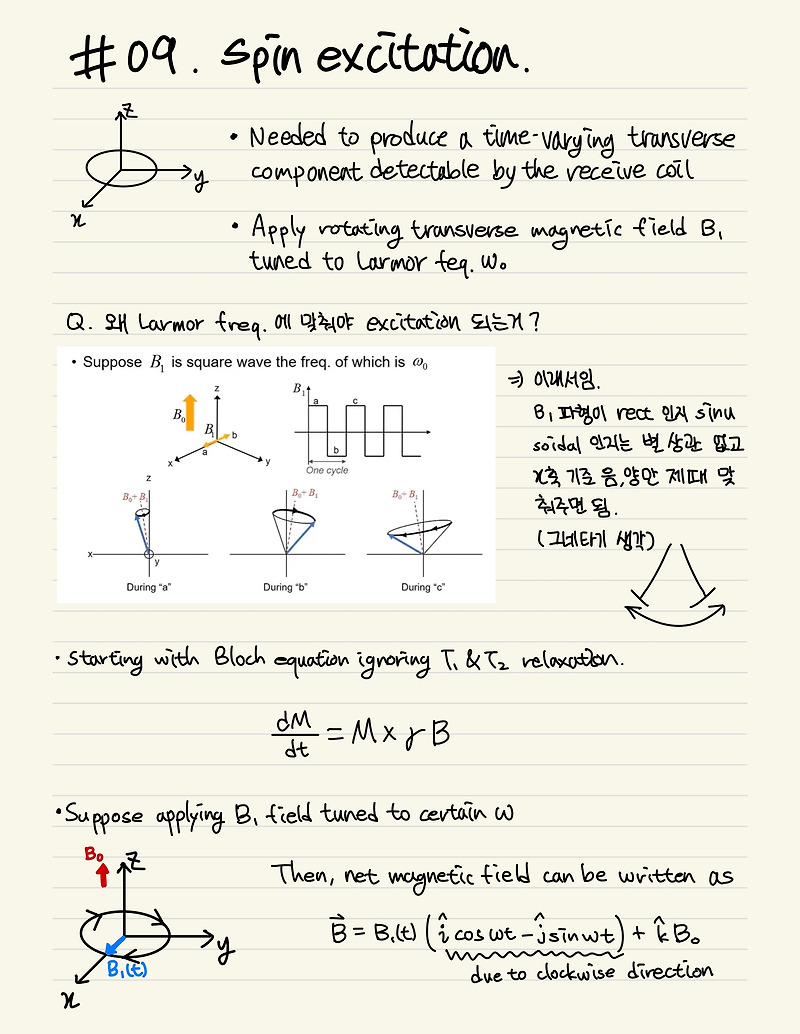 #09. Spin excitation.
z
y
x
• Needed to produce a time-varying transverse
component detectable by the receive coil
• Apply rotating transverse magnetic field B₁
tuned to Larmor feq. ω₀
Q. 왜 Larmor freq. 에 맞춰야 excitation 되는거?
• Suppose B₁ is square wave the freq. of which is ω₀
z
B₀
B₁
b
a
x
y
B₁
a
c
b
One cycle
z
B₀+B₁
x
y
During "a"
B₀+B₁
During "b"
B₀+B₁
During "c"
⇒ 이래서임.
B₁ 파형이 rect 인지 sinu
soidal 인지는 별 상관 없고
x축 기준 음,양만 제때 맞
춰주면 됨.
(그네타기 생각)
• Starting with Bloch equation ignoring T₁ & T₂ relaxation.
dM/dt = M × γB
• Suppose applying B₁ field tuned to certain ω
B₀
z
y
B₁(t)
x
Then, net magnetic field can be written as
B⃗ = B₁(t) (î cos ωt - ĵ sin ωt) + k̂ B₀
due to clockwise direction